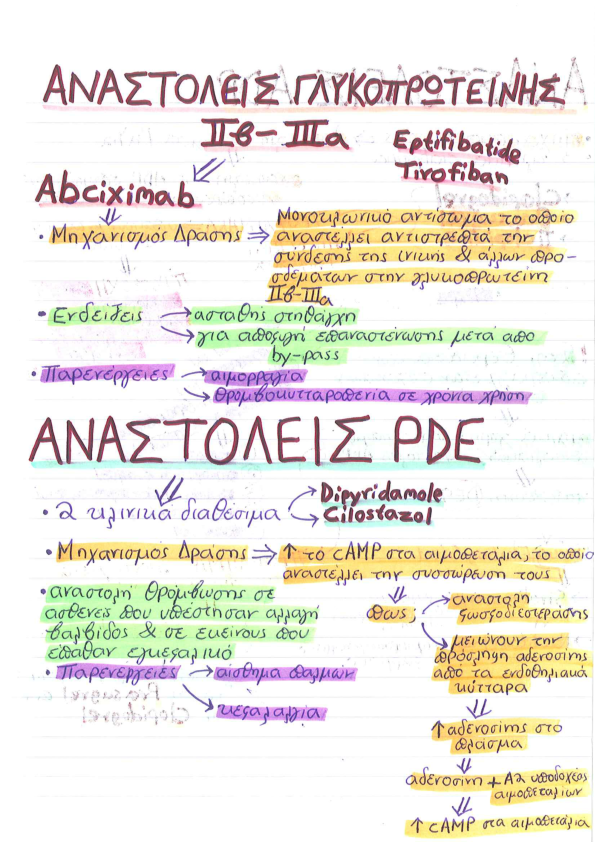 ΑΝΑΣΤΟΛΕΙΣ ΓΛΥΚΟΠΡΩΤΕΙΝΗΣ
ΙΙβ - ΙΙΙa
Eptifibatide
Tirofiban
Abciximab
• Μηχανισμός Δράσης ⇒ Μονοκλωνικό αντισωμα το οποίο
αναστέλλει αντιστρεπτά την
σύνδεσης της ινικης & άλλων προ-
σδεμάτων στην γλυκοπρωτεΐνη
ΙΙβ-ΙΙΙa
• Ενδείξεις → ασταθής στηθάγχη
→ για αποφυγή επαναστένωσης μετά από
by-pass
• Παρενέργειες → αιμορραγία
→ θρομβοκυτταροπενία σε χρόνια χρήση
ΑΝΑΣΤΟΛΕΙΣ PDE
• 2 κλινικά διαθέσιμα → Dipyridamole
→ Cilostazol
• Μηχανισμός Δράσης ⇒ ↑ το cAMP στα αιμοπετάλια, το οποίο
αναστέλλει την συσσώρευση τους
• αναστολή θρόμβωσης σε
ασθενείς που υπέστησαν αλλαγή
βαλβίδος & σε εκείνους που
έπαθαν εγκεφαλικό
• Παρενέργειές → αίσθημα παλμών
→ κεφαλαλγία
πως;
→ αναστολη
φωσφοδιεστεράσης
→ μειώνουν την
πρόσληψη αδενοσίνης
από τα ενδοθηλιακά
κύτταρα
↑ αδενοσίνης στο
πλάσμα
αδενοσίνη + Α2 υποδοχέας
αιμοπεταλίων
↑ cAMP στα αιμοπετάλια